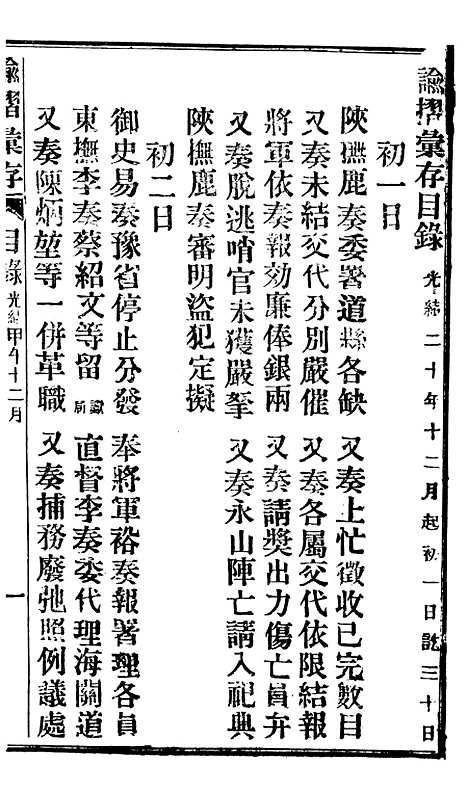 諭摺彙存目錄 光緒二十年十二月起初一日訖三十日
初一日
陝撫鹿奏委署道縣各缺 又奏上忙徵收已完數目
又奏未結交代分別嚴催 又奏各屬交代依限結報
將軍依奏報効廉俸銀兩 又奏請獎出力傷亡員弁
又奏脫逃哨官未獲嚴拏 又奏永山陣亡請入祀典
陝撫鹿奏審明盜犯定擬
初二日
御史易奏豫省停止分發 奉將軍裕奏報署理各員
東撫李奏蔡紹文等留 直督李奏委代理海關道
又奏陳炳堃等一併革職 又奏捕務廢弛照例議處
諭摺彙存 目錄 光緒甲午十二月 一